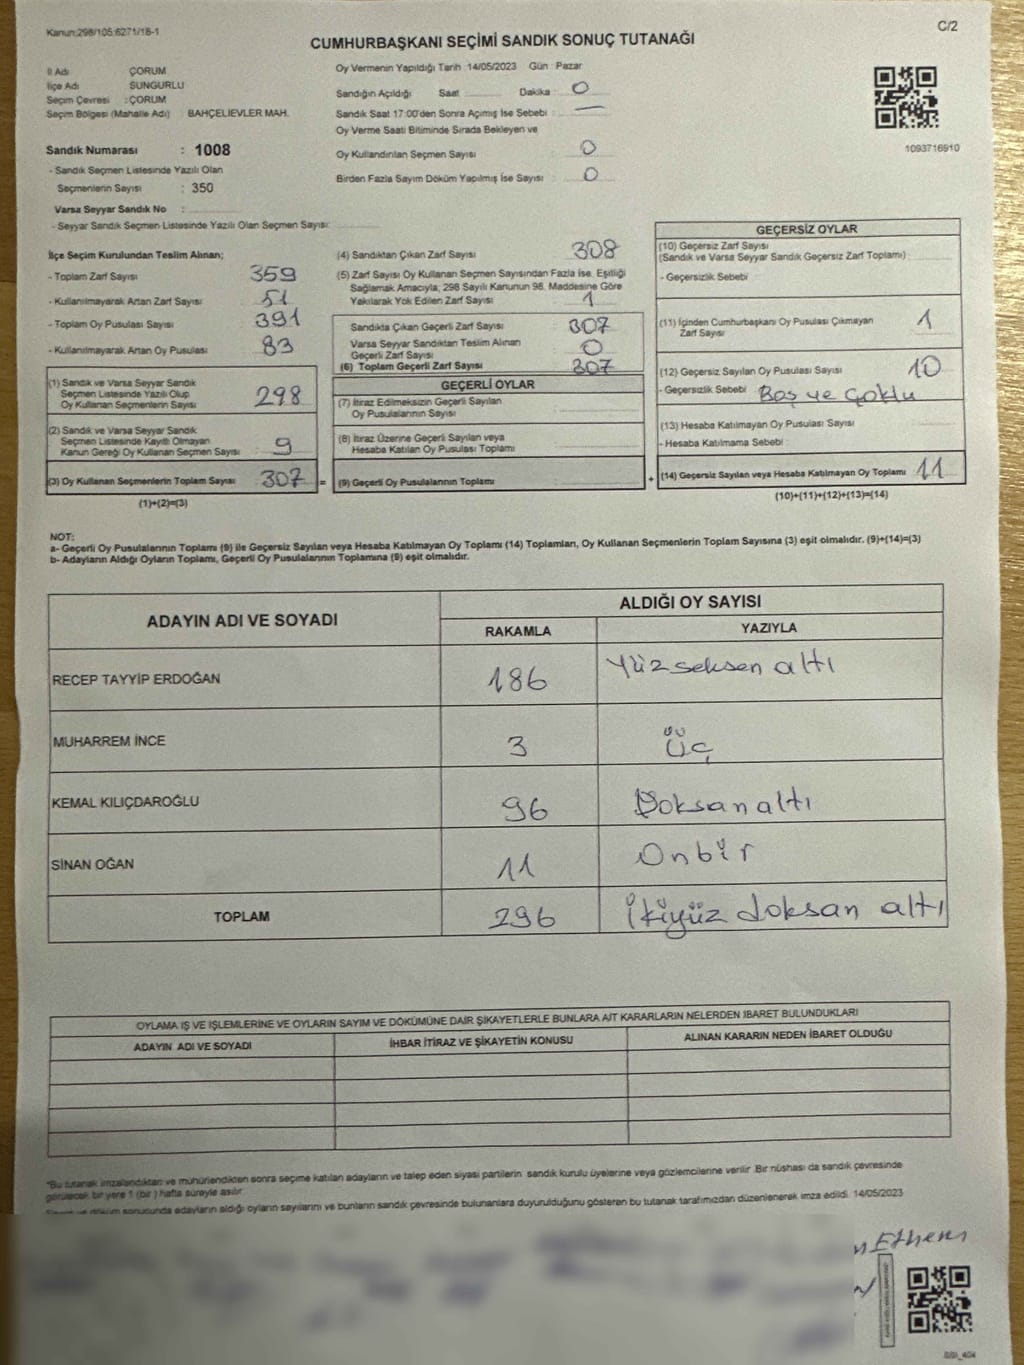 Kanun:298/105:6271/18-1
C/2
CUMHURBAŞKANI SEÇİMİ SANDIK SONUÇ TUTANAĞI
İl Adı ÇORUM
İlçe Adı SUNGURLU
Seçim Çevresi : ÇORUM
Seçim Bölgesi (Mahalle Adı) BAHÇELİEVLER MAH.
Sandık Numarası : 1008
- Sandık Seçmen Listesinde Yazılı Olan
Seçmenlerin Sayısı : 350
Varsa Seyyar Sandık No :
- Seyyar Sandık Seçmen Listesinde Yazılı Olan Seçmen Sayısı:
Oy Vermenin Yapıldığı Tarih 14/05/2023 Gün : Pazar
Sandığın Açıldığı Saat Dakika : 0
Sandık Saat 17:00'den Sonra Açımış İse Sebebi : —
Oy Verme Saati Bitiminde Sırada Bekleyen ve
Oy Kullandırılan Seçmen Sayısı : 0
Birden Fazla Sayım Döküm Yapılmış İse Sayısı : 0
1093716910
İlçe Seçim Kurulundan Teslim Alınan;
- Toplam Zarf Sayısı : 359
- Kullanılmayarak Artan Zarf Sayısı : 51
- Toplam Oy Pusulası Sayısı : 391
- Kullanılmayarak Artan Oy Pusulası : 83
(1) Sandık ve Varsa Seyyar Sandık
Seçmen Listesinde Yazılı Olup
Oy Kullanan Seçmenlerin Sayısı : 298
(2) Sandık ve Varsa Seyyar Sandık
Seçmen Listesinde Kayıtlı Olmayan
Kanun Gereği Oy Kullanan Seçmen Sayısı : 9
(3) Oy Kullanan Seçmenlerin Toplam Sayısı : 307 =
(1)+(2)=(3)
(4) Sandıktan Çıkan Zarf Sayısı : 308
(5) Zarf Sayısı Oy Kullanan Seçmen Sayısından Fazla İse, Eşitliği
Sağlamak Amacıyla; 298 Sayılı Kanunun 98. Maddesine Göre
Yakılarak Yok Edilen Zarf Sayısı : 1
Sandıkta Çıkan Geçerli Zarf Sayısı : 307
Varsa Seyyar Sandıktan Teslim Alınan
Geçerli Zarf Sayısı : 0
(6) Toplam Geçerli Zarf Sayısı : 307
GEÇERLİ OYLAR
(7) İtiraz Edilmeksizin Geçerli Sayılan
Oy Pusulalarının Sayısı :
(8) İtiraz Üzerine Geçerli Sayılan veya
Hesaba Katılan Oy Pusulası Toplamı :
(9) Geçerli Oy Pusulalarının Toplamı : +
GEÇERSİZ OYLAR
(10) Geçersiz Zarf Sayısı
(Sandık ve Varsa Seyyar Sandık Geçersiz Zarf Toplamı) :
- Geçersizlik Sebebi :
(11) İçinden Cumhurbaşkanı Oy Pusulası Çıkmayan
Zarf Sayısı : 1
(12) Geçersiz Sayılan Oy Pusulası Sayısı : 10
- Geçersizlik Sebebi : Boş ve Çoklu
(13) Hesaba Katılmayan Oy Pusulası Sayısı :
- Hesaba Katılmama Sebebi :
(14) Geçersiz Sayılan veya Hesaba Katılmayan Oy Toplamı : 11
(10)+(11)+(12)+(13)=(14)
NOT:
a- Geçerli Oy Pusulalarının Toplamı (9) ile Geçersiz Sayılan veya Hesaba Katılmayan Oy Toplamı (14) Toplamları, Oy Kullanan Seçmenlerin Toplam Sayısına (3) eşit olmalıdır. (9)+(14)=(3)
b- Adayların Aldığı Oyların Toplamı, Geçerli Oy Pusulalarının Toplamına (9) eşit olmalıdır.
ADAYIN ADI VE SOYADI
ALDIĞI OY SAYISI
RAKAMLA YAZIYLA
RECEP TAYYİP ERDOĞAN 186 Yüzseksen altı
MUHARREM İNCE 3 Üç
KEMAL KILIÇDAROĞLU 96 Doksanaltı
SİNAN OĞAN 11 Onbir
TOPLAM 296 İkiyüz doksan altı
OYLAMA İŞ VE İŞLEMLERİNE VE OYLARIN SAYIM VE DÖKÜMÜNE DAİR ŞİKAYETLERLE BUNLARA AİT KARARLARIN NELERDEN İBARET BULUNDUKLARI
ADAYIN ADI VE SOYADI İHBAR İTİRAZ VE ŞİKAYETİN KONUSU ALINAN KARARIN NEDEN İBARET OLDUĞU
*Bu tutanak imzalandıktan ve mühürlendikten sonra seçime katılan adayların ve talep eden siyasi partilerin sandık kurulu üyelerine veya gözlemcilerine verilir. Bir nüshası da sandık çevresinde
görülecek bir yere 1 (bir) hafta süreyle asılır.
Sayım ve döküm sonucunda adayların aldığı oyların sayılarını ve bunların sandık çevresinde bulunanlara duyurulduğunu gösteren bu tutanak tarafımızdan düzenlenerek imza edildi. 14/05/2023
Ethem